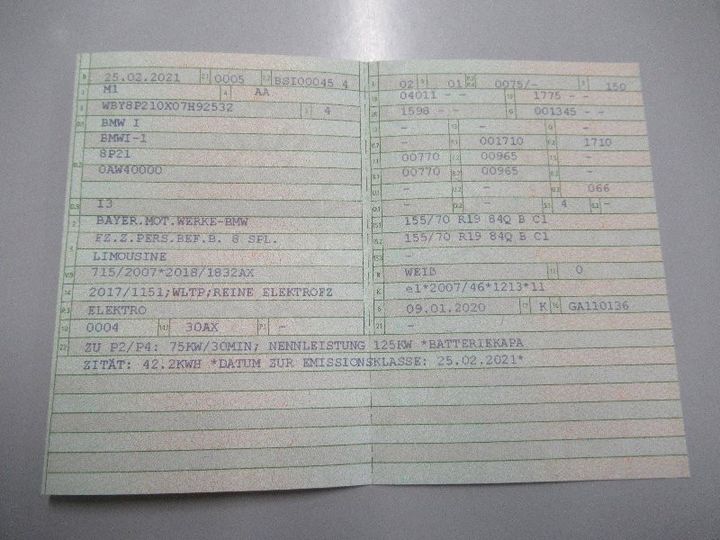 25.02.2021 0005 BSI00045 4
M1 AA
WBY8P210X07H92532 4
BMW I
BMWI-1
8P21
0AW40000
I3
BAYER.MOT.WERKE-BMW
FZ.Z.PERS.BEF.B. 8 SPL.
LIMOUSINE
715/2007*2018/1832AX
2017/1151;WLTP;REINE ELEKTROFZ
ELEKTRO
0004 30AX -
ZU P2/P4: 75KW/30MIN; NENNLEISTUNG 125KW *BATTERIEKAPA
ZITÄT: 42.2KWH *DATUM ZUR EMISSIONSKLASSE: 25.02.2021*
02 01 0075/- 150
04011 - - 1775 - -
1598 - - 001345 - -
- - -
- 001710 1710
00770 00965 -
00770 00965 -
- - 066
- - 4 -
155/70 R19 84Q B C1
155/70 R19 84Q B C1
-
WEIß 0
e1*2007/46*1213*11
09.01.2020 K GA110136
-